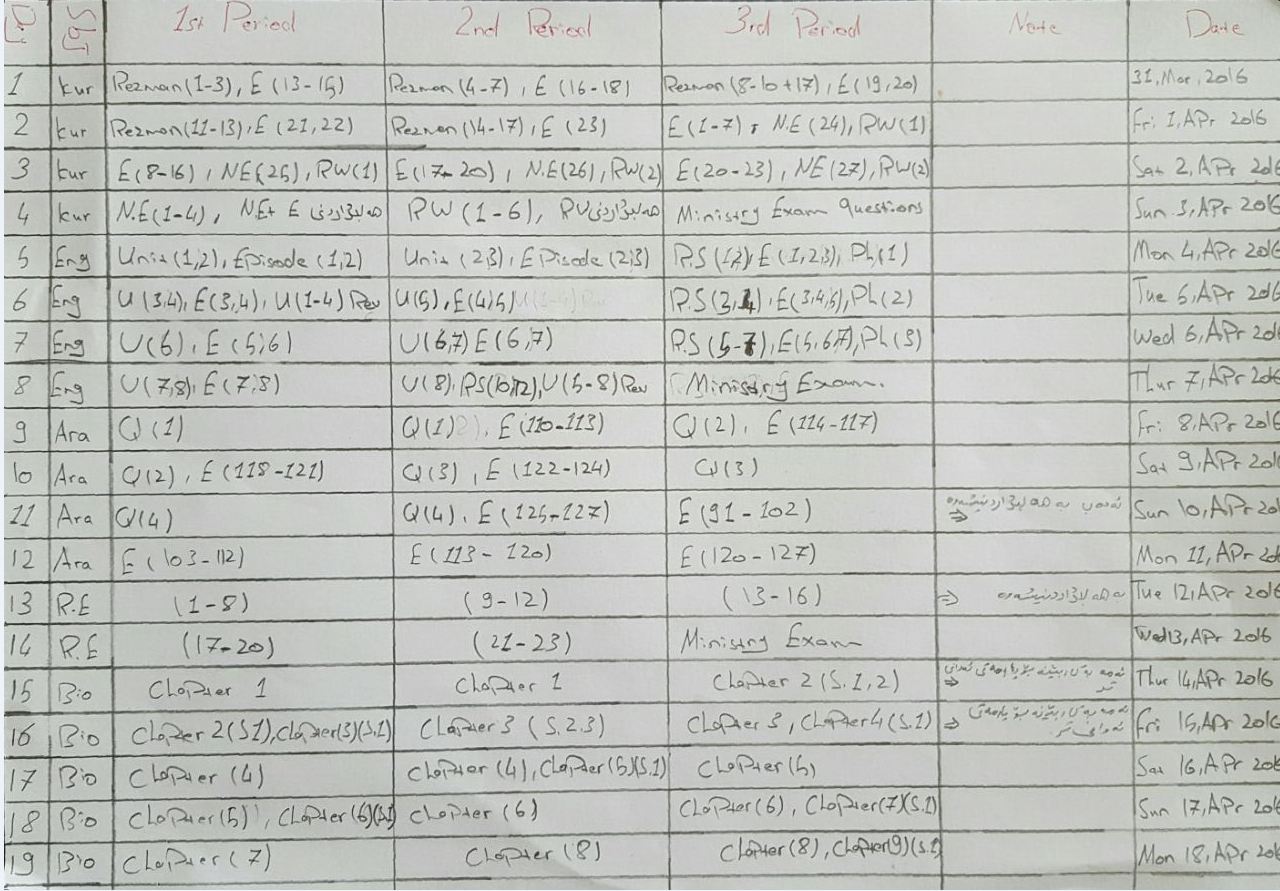 1st Period 2nd Period 3rd Period Note Date
1 kur Rezman(1-3), E(13-15) Rezman(4-7), E(16-18) Rezman(8-10+17), E(19,20) 31,Mar,2016
2 kur Rezman(11-13), E(21,22) Rezman(14-17), E(23) E(1-7) + N.E(24), RW(1) Fri 1,APr 2016
3 kur E(8-16), NE(25), RW(1) E(17-20), N.E(26), RW(2) E(20-23), NE(27), RW(2) Sat 2,APr 2016
4 kur N.E(1-4), NE+ E هەڵبژاردنی RW(1-6), RW هەڵبژاردنی Ministry Exam Questions Sun 3,APr 2016
5 Eng Unit(1,2), Episode(1,2) Unit(2,3), EPisode(2,3) R.S(1,2), E(1,2,3), Ph(1) Mon 4,APr 2016
6 Eng U(3,4), E(3,4), U(1-4)Rev U(5), E(4,5) R.S(3,4), E(3,4,5), Ph(2) Tue 5,APr 2016
7 Eng U(6), E(5,6) U(6,7) E(6,7) R.S(5-7), E(5,6,7), Ph(3) Wed 6,APr 2016
8 Eng U(7,8), E(7,8) U(8), RS(10,12), U(5-8)Rev Ministry Exam. Thur 7,APr 2016
9 Ara Q(1) Q(1), E(110-113) Q(2), E(114-117) Fri 8,APr 2016
10 Ara Q(2), E(118-121) Q(3), E(122-124) Q(3) Sat 9,APr 2016
11 Ara Q(4) Q(4), E(125-127) E(91-102) Sun 10,APr 201
12 Ara E(103-112) E(113-120) E(120-127) Mon 11,APr 201
13 R.E (1-8) (9-12) (13-16) Tue 12,APr 2016
14 R.E (17-20) (21-23) Ministry Exam Wed13,APr 2016
15 Bio Chapter 1 Chapter 1 Chapter 2(S.1,2) Thur 14,APr 2016
16 Bio Chapter 2(S1),Chapter(3)(S.1) Chapter 3 (S.2.3) Chapter 3, Chapter4(S.1) Fri 15,APr 2016
17 Bio Chapter (4) Chapter (4), Chapter(5)(S.1) Chapter(5) Sat 16,APr 2016
18 Bio Chapter(5), Chapter(6)(S1) Chapter (6) Chapter(6), Chapter(7)(S.1) Sun 17,APr 2016
19 Bio Chapter (7) Chapter (8) Chapter(8), Chapter(9)(S.1) Mon 18,APr 2016